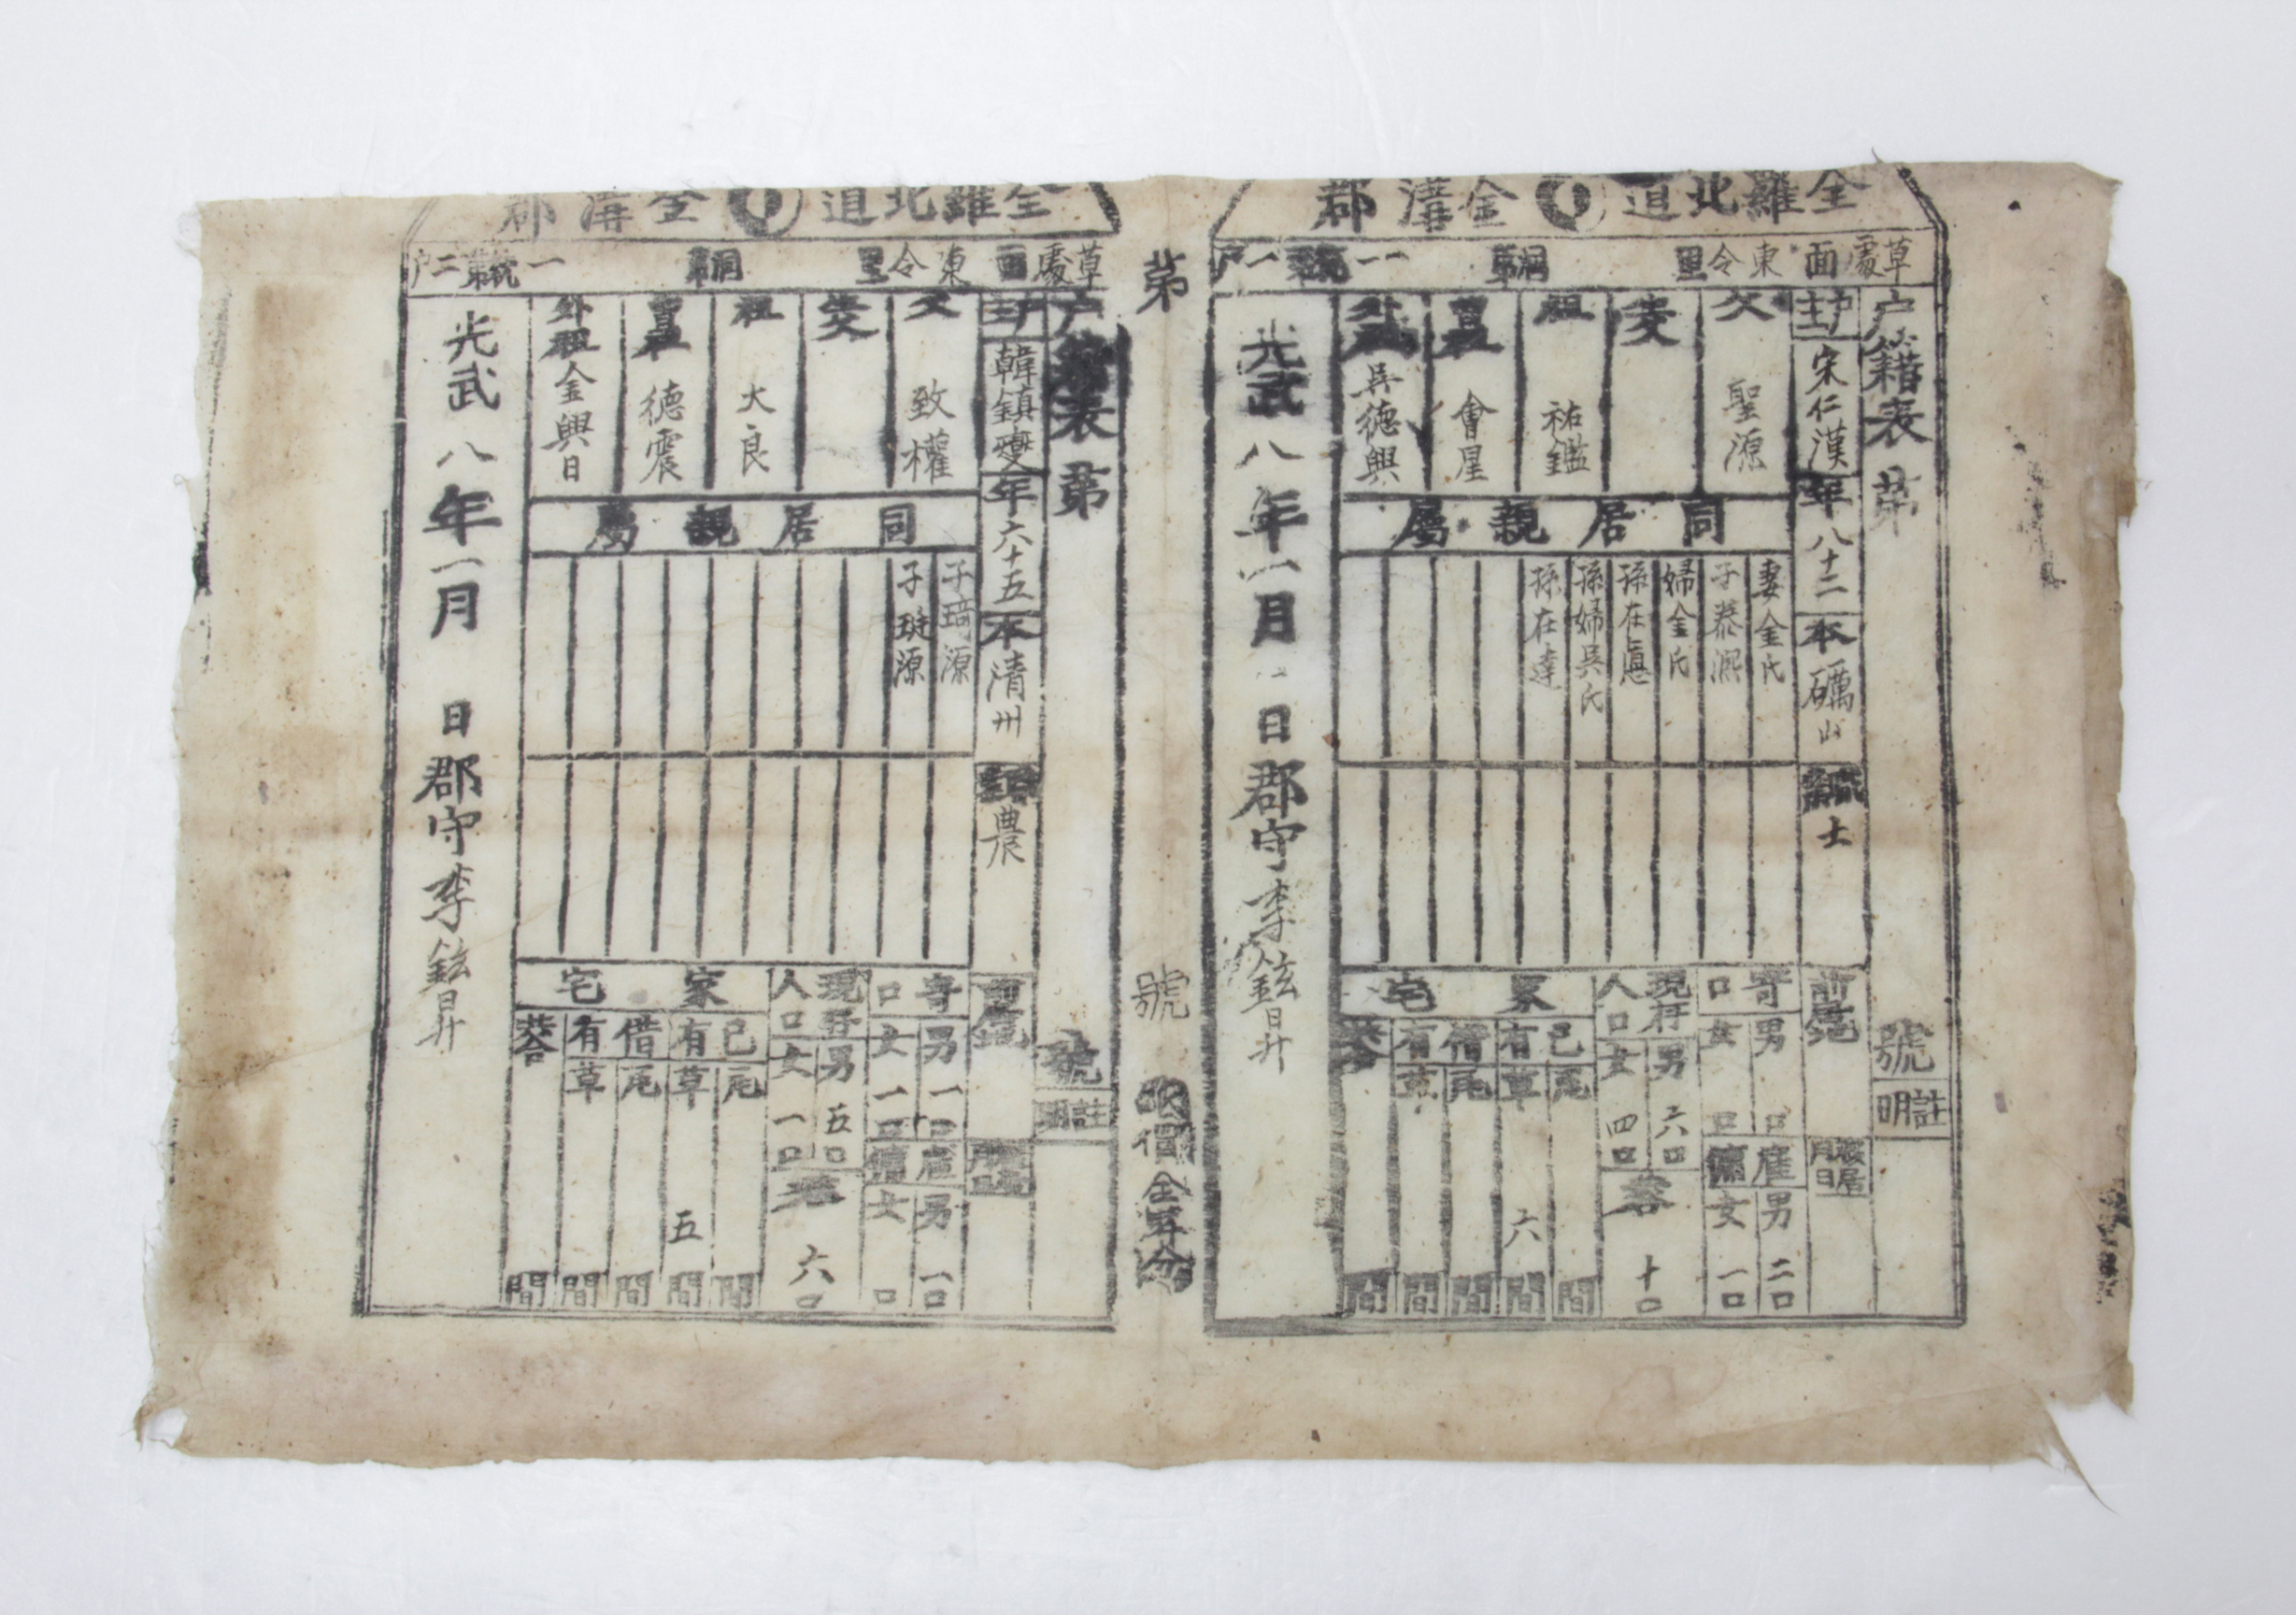 全羅北道 金溝郡
草處面 東令里 洞第 一統第一戶
戶籍表 第 號
註明
戶主 宋仁漢
年 八十二
本 礪山
職業 士
前居地
移居月日
父 聖源
生父
祖 祐鑑
曾祖 會星
外祖 吳德興
同居親屬
妻金氏
子泰
婦金氏
孫在
孫婦吳氏
孫在達
寄口 男 口 女 口
雇傭 男 二口 女 一口
現存人口 男 六口 女 四口
共 十口
家宅
己有 瓦 間 草 六間
借有 瓦 間 草 間
共 間
光武 八年 一月 日 郡守 李鉉昇
第 號
全羅北道 金溝郡
草處面 東令里 洞第 一統第二戶
戶籍表 第 號
註明
戶主 韓鎭
年 六十五
本 清州
職業 農
前居地
移居月日
父 致權
生父
祖 大良
曾祖 德震
外祖 金興日
同居親屬
子琦源
子璇源
寄口 男 一口 女 一口
雇傭 男 一口 女 口
現存人口 男 五口 女 一口
共 六口
家宅
己有 瓦 間 草 五間
借有 瓦 間 草 間
共 間
光武 八年 一月 日 郡守 李鉉昇